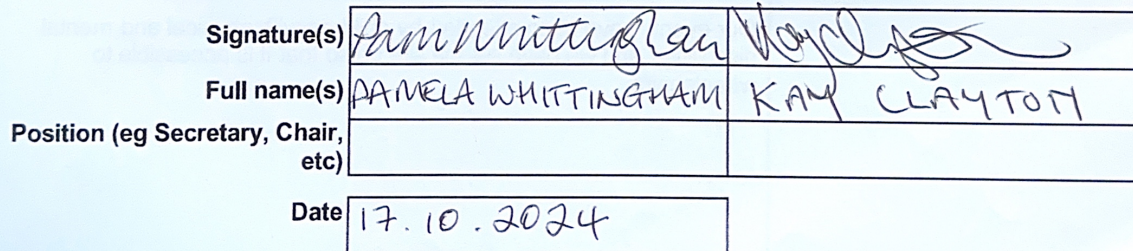 Signature(s) Pam Whittingham Kay Clayton
Full name(s) PAMELA WHITTINGHAM KAY CLAYTON
Position (eg Secretary, Chair,
etc)
Date 17.10.2024